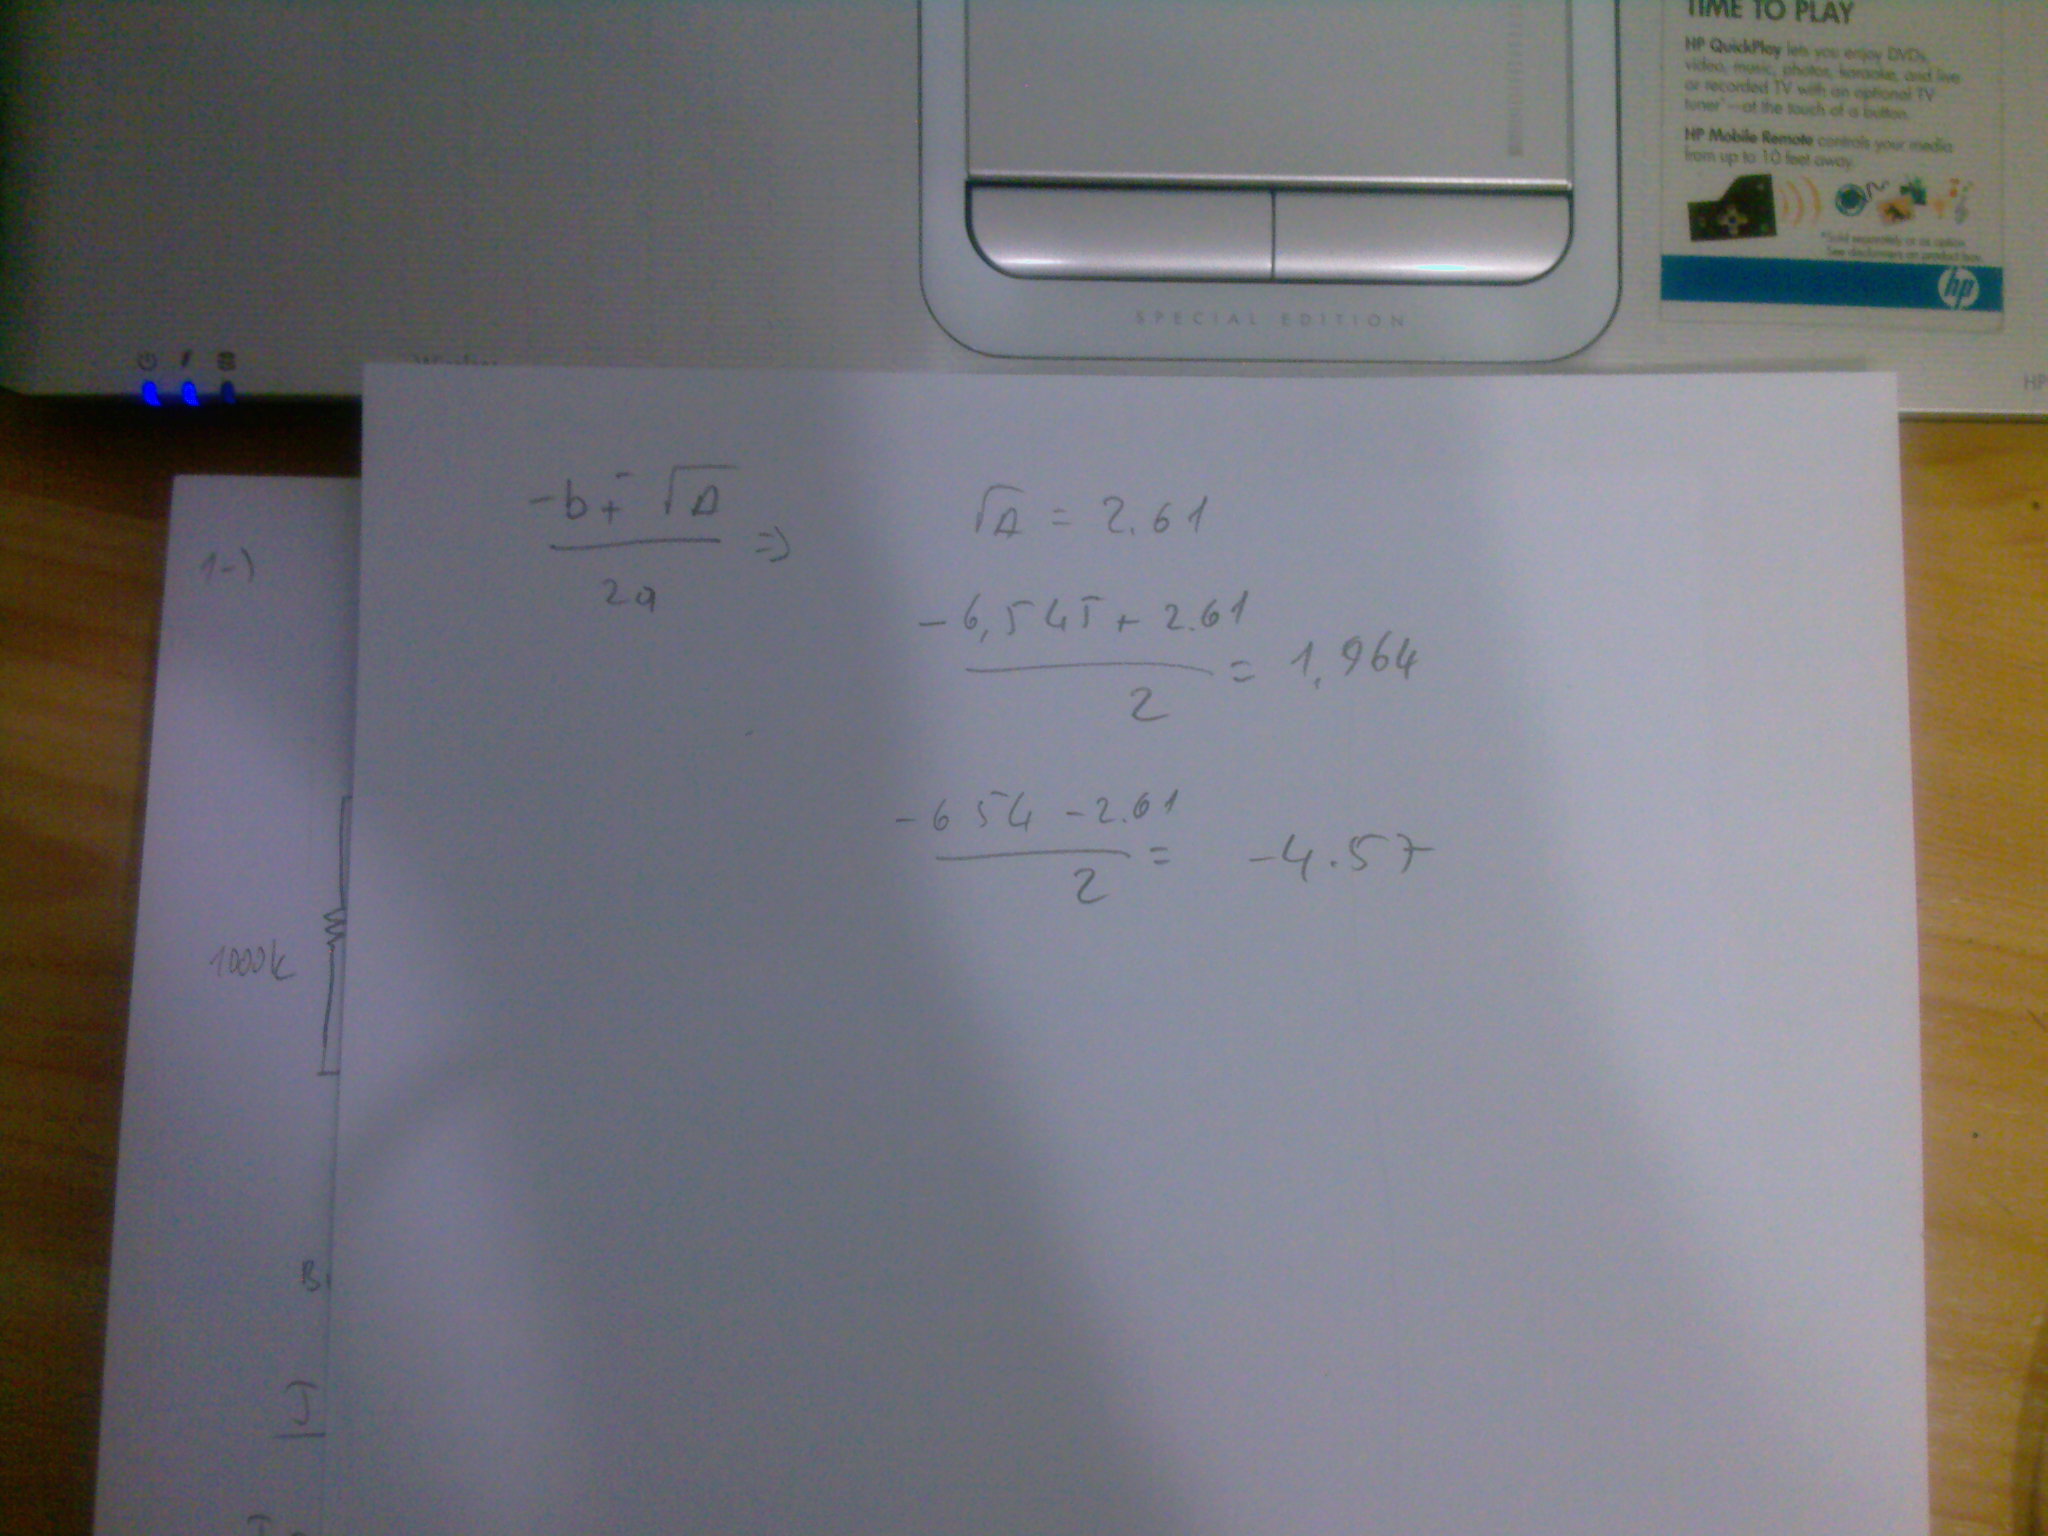 TIME TO PLAY
HP QuickPlay lets you enjoy DVDs,
video, music, photos, karaoke, and live
or recorded TV with an optional TV
tuner*—at the touch of a button.
HP Mobile Remote controls your media
from up to 10 feet away.
*Sold separately or as option.
See disclaimers on product box.
hp
SPECIAL EDITION
HP
-b ± √Δ
2a
=>
√Δ = 2.61
-6,545 + 2.61
2
= 1,964
-6 54 - 2.61
2
= -4.57
1-)
1000k